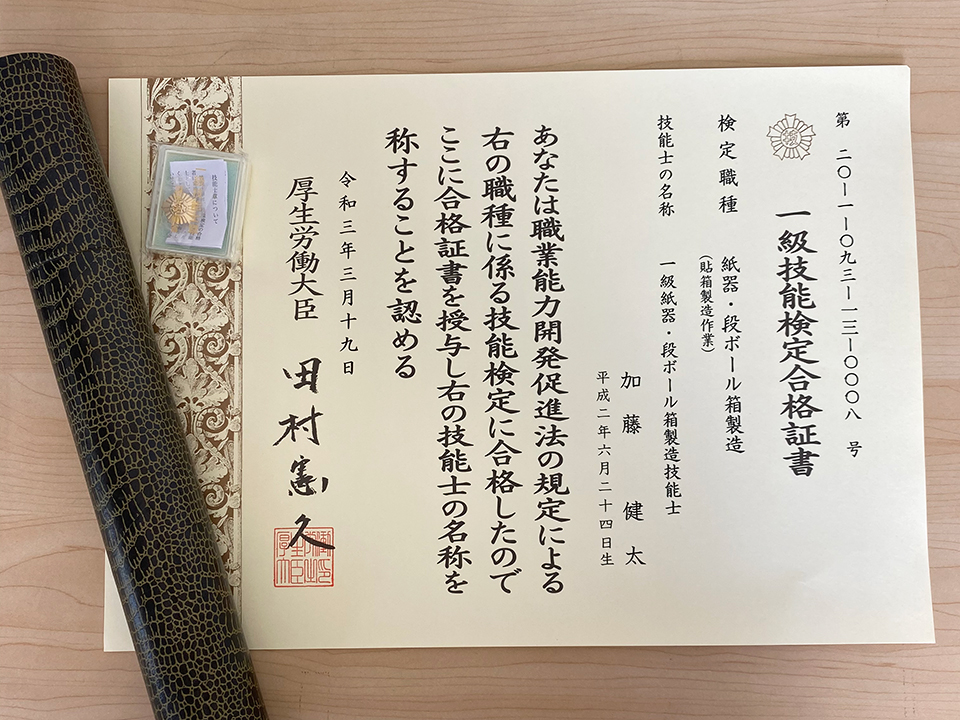 第 二〇―一―〇九三―一三―〇〇〇八 号
一級技能検定合格証書
検定職種 紙器・段ボール箱製造
(貼箱製造作業)
技能士の名称 一級紙器・段ボール箱製造技能士
加藤 健太
平成二年六月二十四日生
あなたは職業能力開発促進法の規定による
右の職種に係る技能検定に合格したので
ここに合格証書を授与し右の技能士の名称を
称することを認める
令和三年三月十九日
厚生労働大臣 田村憲久
技能士章について